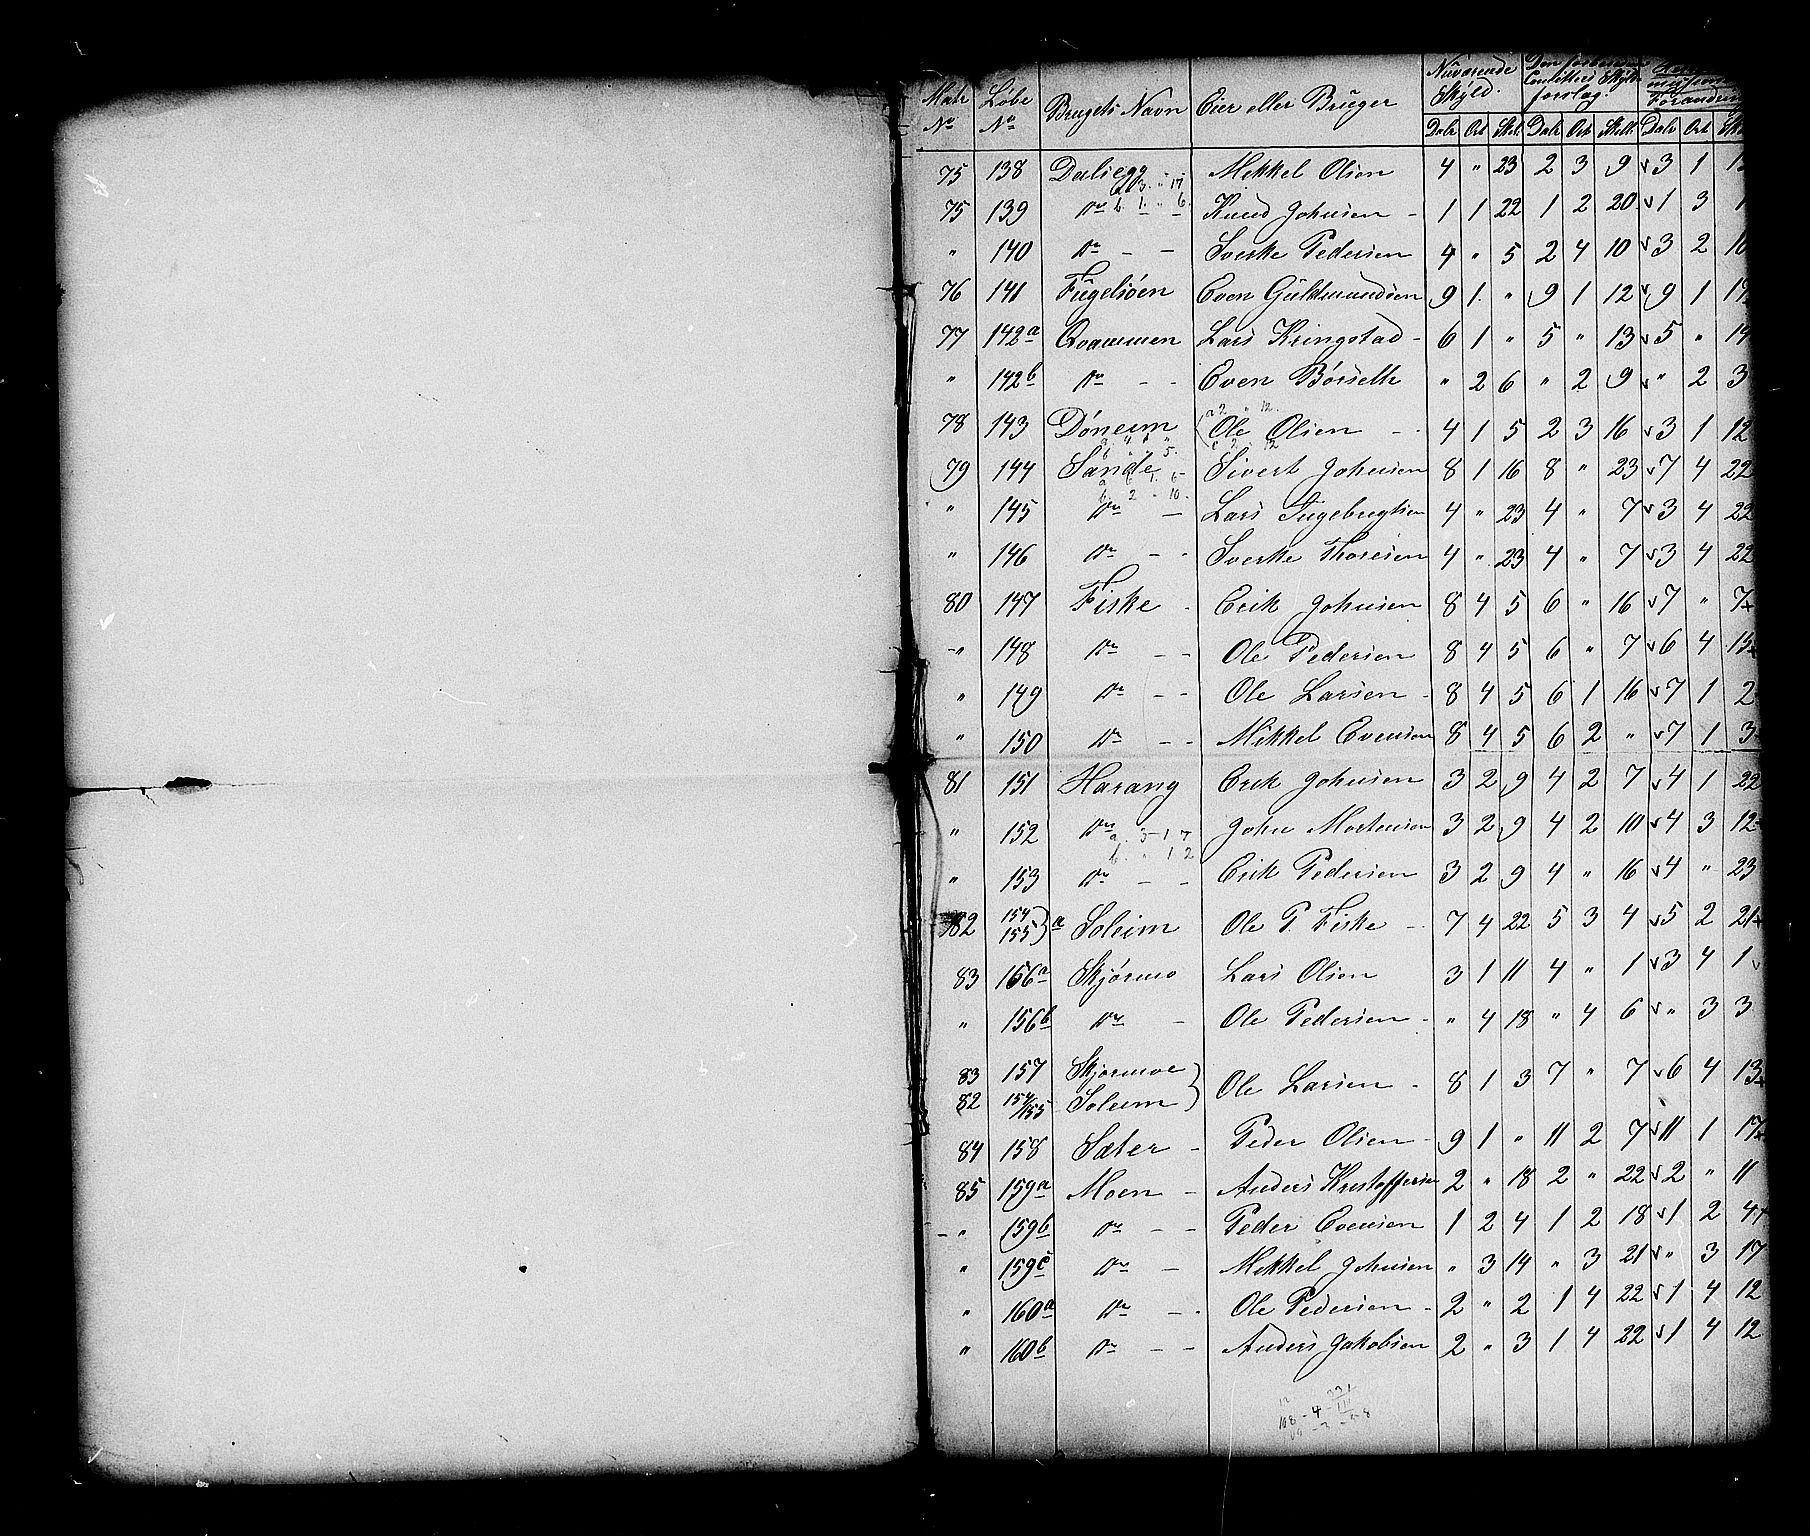 Matr No | Løbe No | Brugets Navn | Eier eller Bruger | Nuværende Skyld. Dalr Ort Skil. | Den forberedende forslag. Dalr Ort Skill. | Forandring Dalr Ort
75 138 Daliegg Mikkel Olsen 4 " 23 2 3 9 v 3 1
a. 3. " 17
75 139 Do b. 1. " 6. Knud Johnsen - 1 1 22 1 2 20 v 1 3
" 140 Do - - Sverke Pedersen 4 " 5 2 4 10 v 3 2 10
76 141 Fugelsøen Even Guldmundsen 9 1. " 9 1 12 v 9 1 19
77 142a Qvammen Lars Kringstad - 6 1 " 5 " 13 v 5 " 19
" 142b Do - - Even Børseth " 2 6 " 2 9 v " 2 3
a 2 " 12.
78 143 Døneim Ole Olsen - - 4 1 5 2 3 16 v 3 1 12
79 144 Sande Sivert Johnsen 8 1 16 8 " 23 v 7 4 22
a 6 1. 6
b. 2 " 10.
" 145 Do - Lars Ingebregtsen 4 " 23 4 " 7 v 3 4 22
" 146 Do - - Sverke Thoresen 4 " 23 4 " 7 v 3 4 22
80 147 Fiske - Erik Johnsen 8 4 5 6 " 16 v 7 " 7
" 148 Do - - Ole Pedersen 8 4 5 6 " 7 v 6 4 15
" 149 Do - - Ole Larsen - 8 4 5 6 1 16 v 7 1 2
" 150 Do - - Mikkel Evensen 8 4 5 6 2 " v 7 1 3
81 151 Harang Erik Johnsen 3 2 9 4 2 7 v 4 1 22
" 152 Do John Mortensen 3 2 9 4 2 10 v 4 3 12
a. 3 - 1 7
b. " 1 2
" 153 Do - - Erik Pedersen 3 2 9 4 " 16 v 4 " 23
82 154 155 } a Soleim Ole P. Fiske - 7 4 22 5 3 4 v 5 2 21
83 156a Skjørmo Lars Olsen 3 1 11 4 " 1 v 3 4 1
" 156b Do - Ole Pedersen - " 4 18 " 4 6 v " 3 3
83 157 Skjørmoe
82 154/155 Soleim } Ole Larsen - 8 1 3 7 " 7 v 6 4 13
84 158 Sæter - Peder Olsen - 9 1 " 11 2 7 v 11 1 17
85 159a Moen - Anders Kristoffersen 2 " 18 2 " 22 v 2 " 11
" 159b Do - - Peder Evensen 1 2 4 1 2 18 v 1 2 4
" 159c Do - Mikkel Johnsen " 3 14 " 3 21 v " 3 17
" 160a Do - - Ole Pedersen - 2 " 2 1 4 22 v 1 4 12
" 160b Do - - Anders Jakobsen 2 " 3 1 4 22 v 1 4 12
108 - 4 -